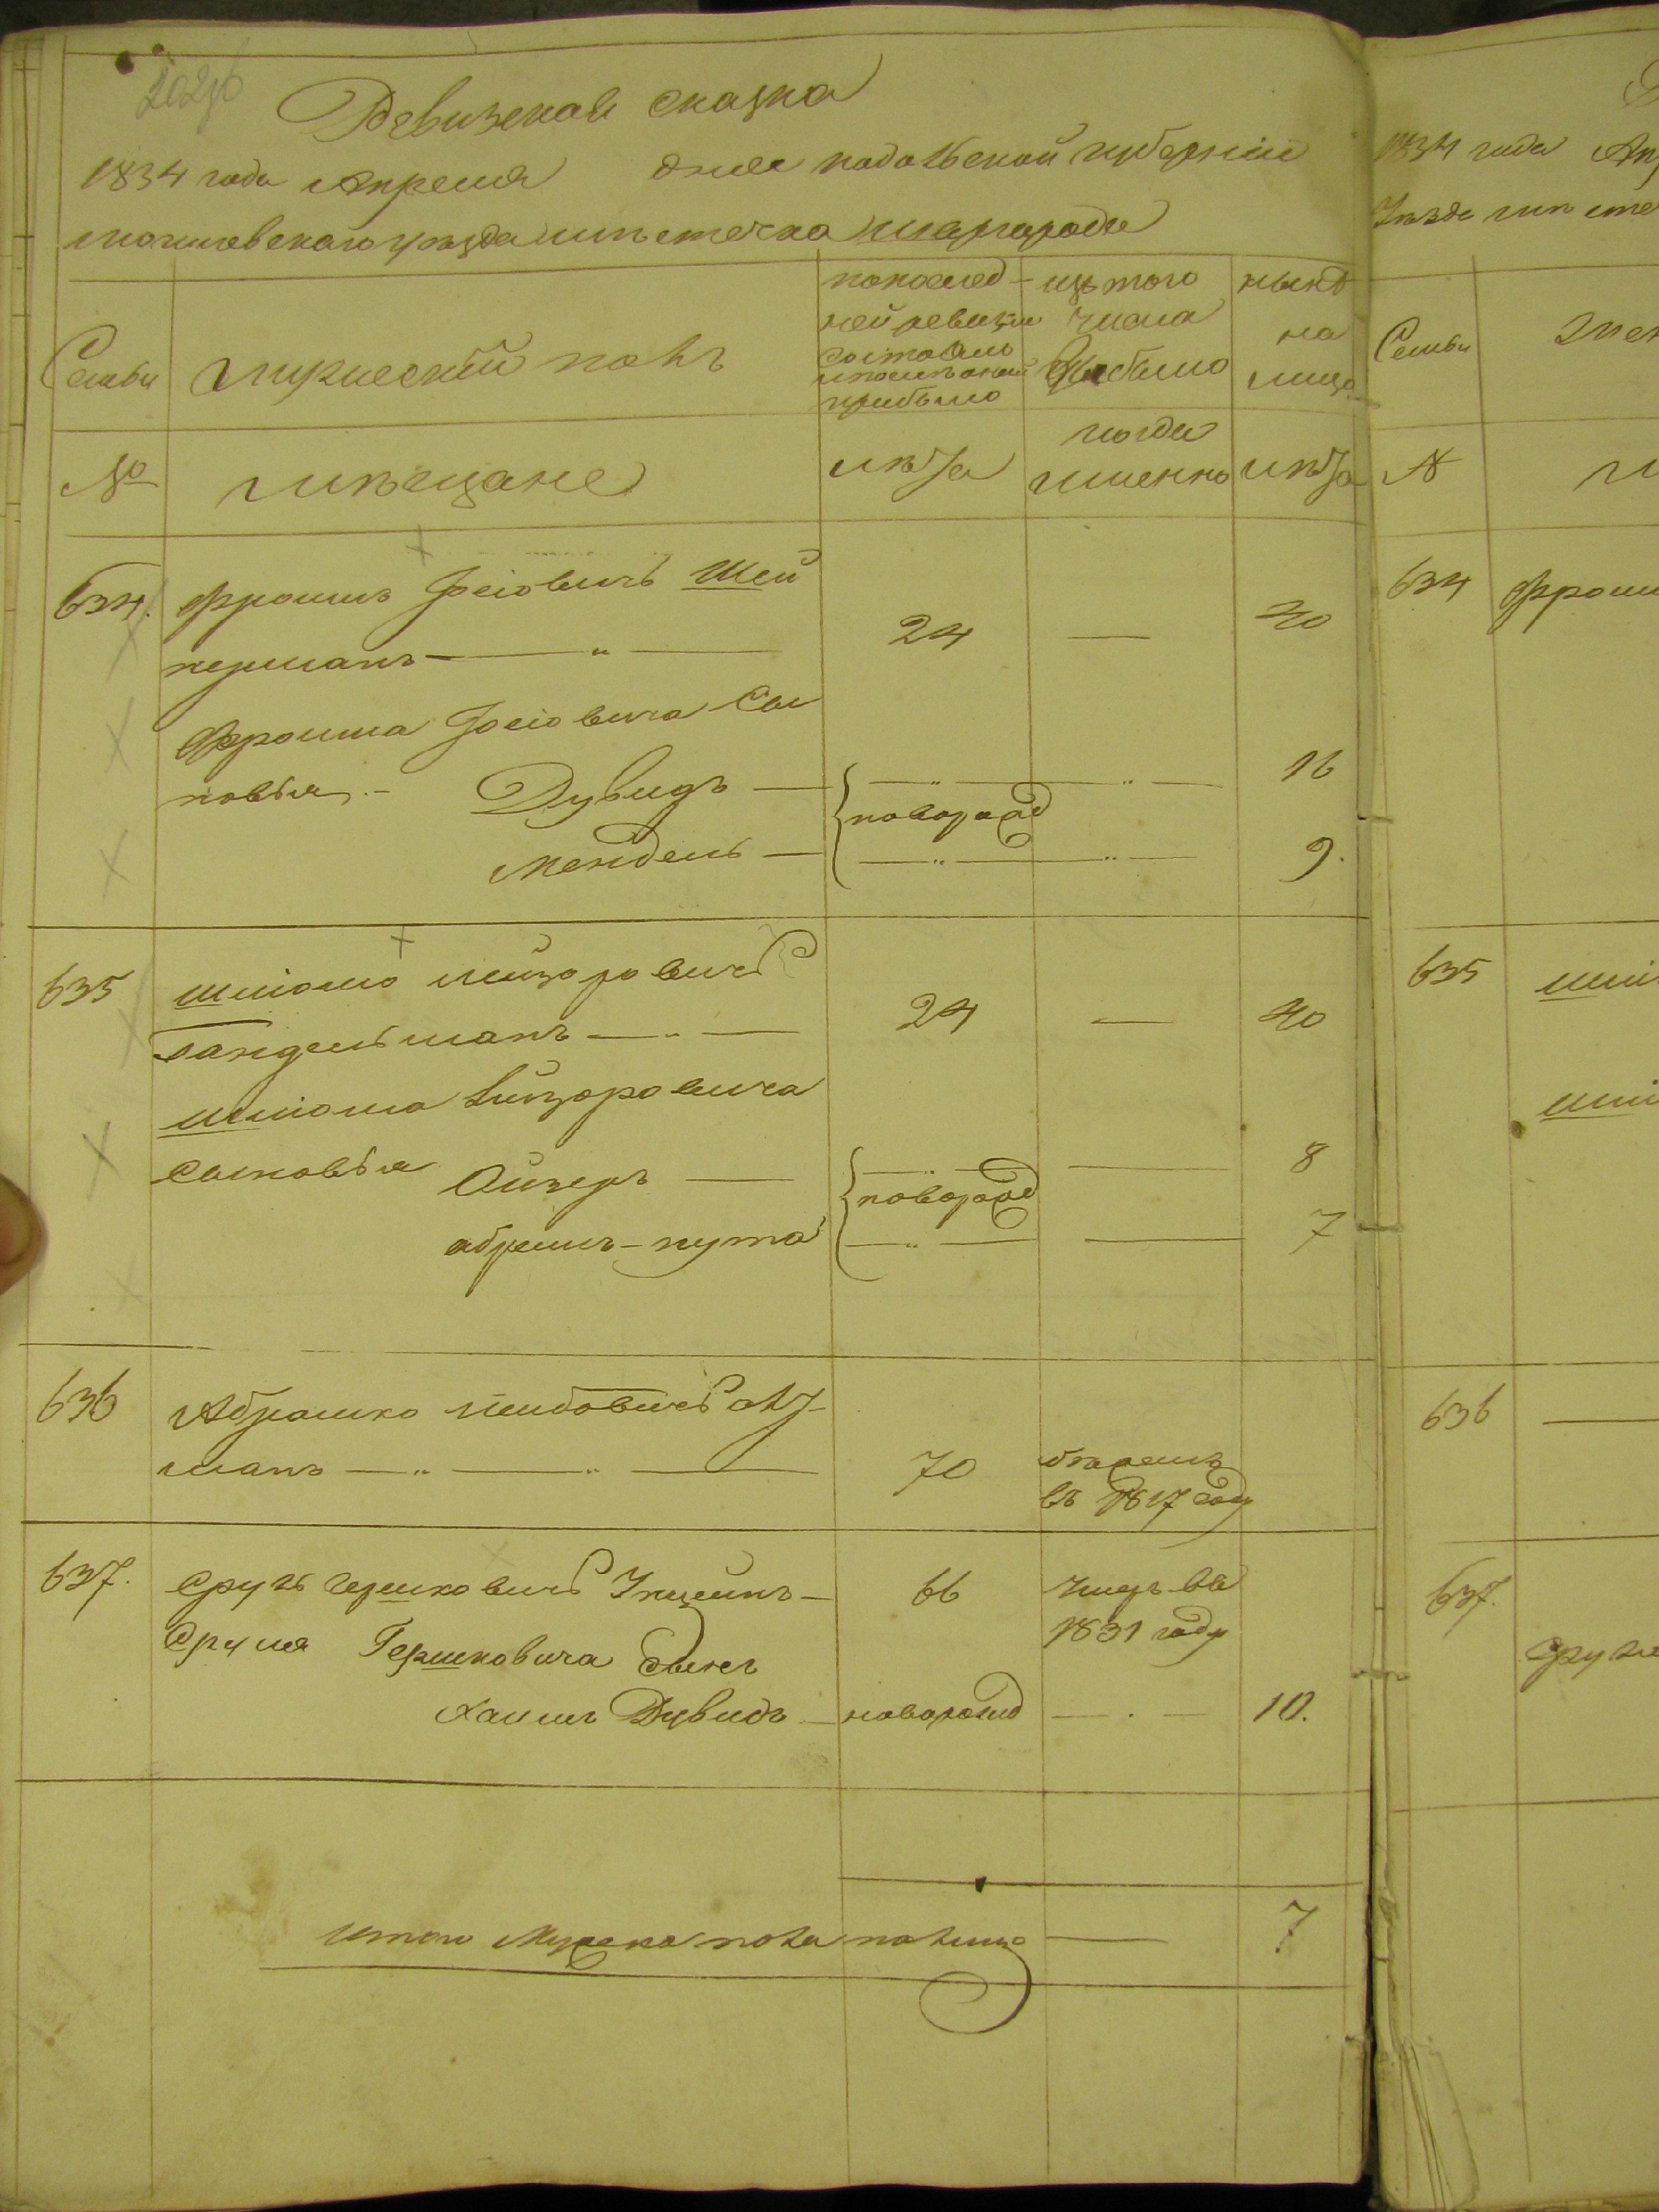 Ревизская сказка
1834 года Апреля дня Подольской губернии
могилевского уезда местечка Шаргорода
Семьи
мужеский полъ
по послед-
ней ревизіи
состояло
и после оной
прибыло
изъ того
числа
выбыло
ныне
на
лицо
№
мѣщане
лѣта
когда
именно
лѣта
634.
Фроимъ Іосіовичъ Шей
нерманъ
24
—
40
Фроима Іосіовича сы
новья
Дувидъ
новорожд
16
Мендель
9.
635
Шліома Лейзоровичъ
Гандельманъ
24
—
40
Шліома Лейзоровича
сыновья
Ойзеръ
новорожд
8
абрамъ-нута
7
636
Абрамко Лейбовичъ
манъ
70
въ 1817 году
637.
Сруль Гершковичъ
66
умеръ въ
1831 году
Сруля Гершковича сынъ
Хаимъ Дувидъ
новорожд
10.
Итого Мужеска пола налицо
7
1834 года
Уезда месте
Семьи
№
634
Фроим
635
636
637.
Срул